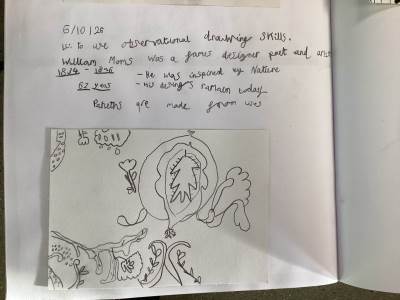 6/10/25
to use observational drawing skills.
William Morris was a fames designer poet and artist
1834 - 1896 - He was inspired by Nature
62 years - his desings remain today
are made from